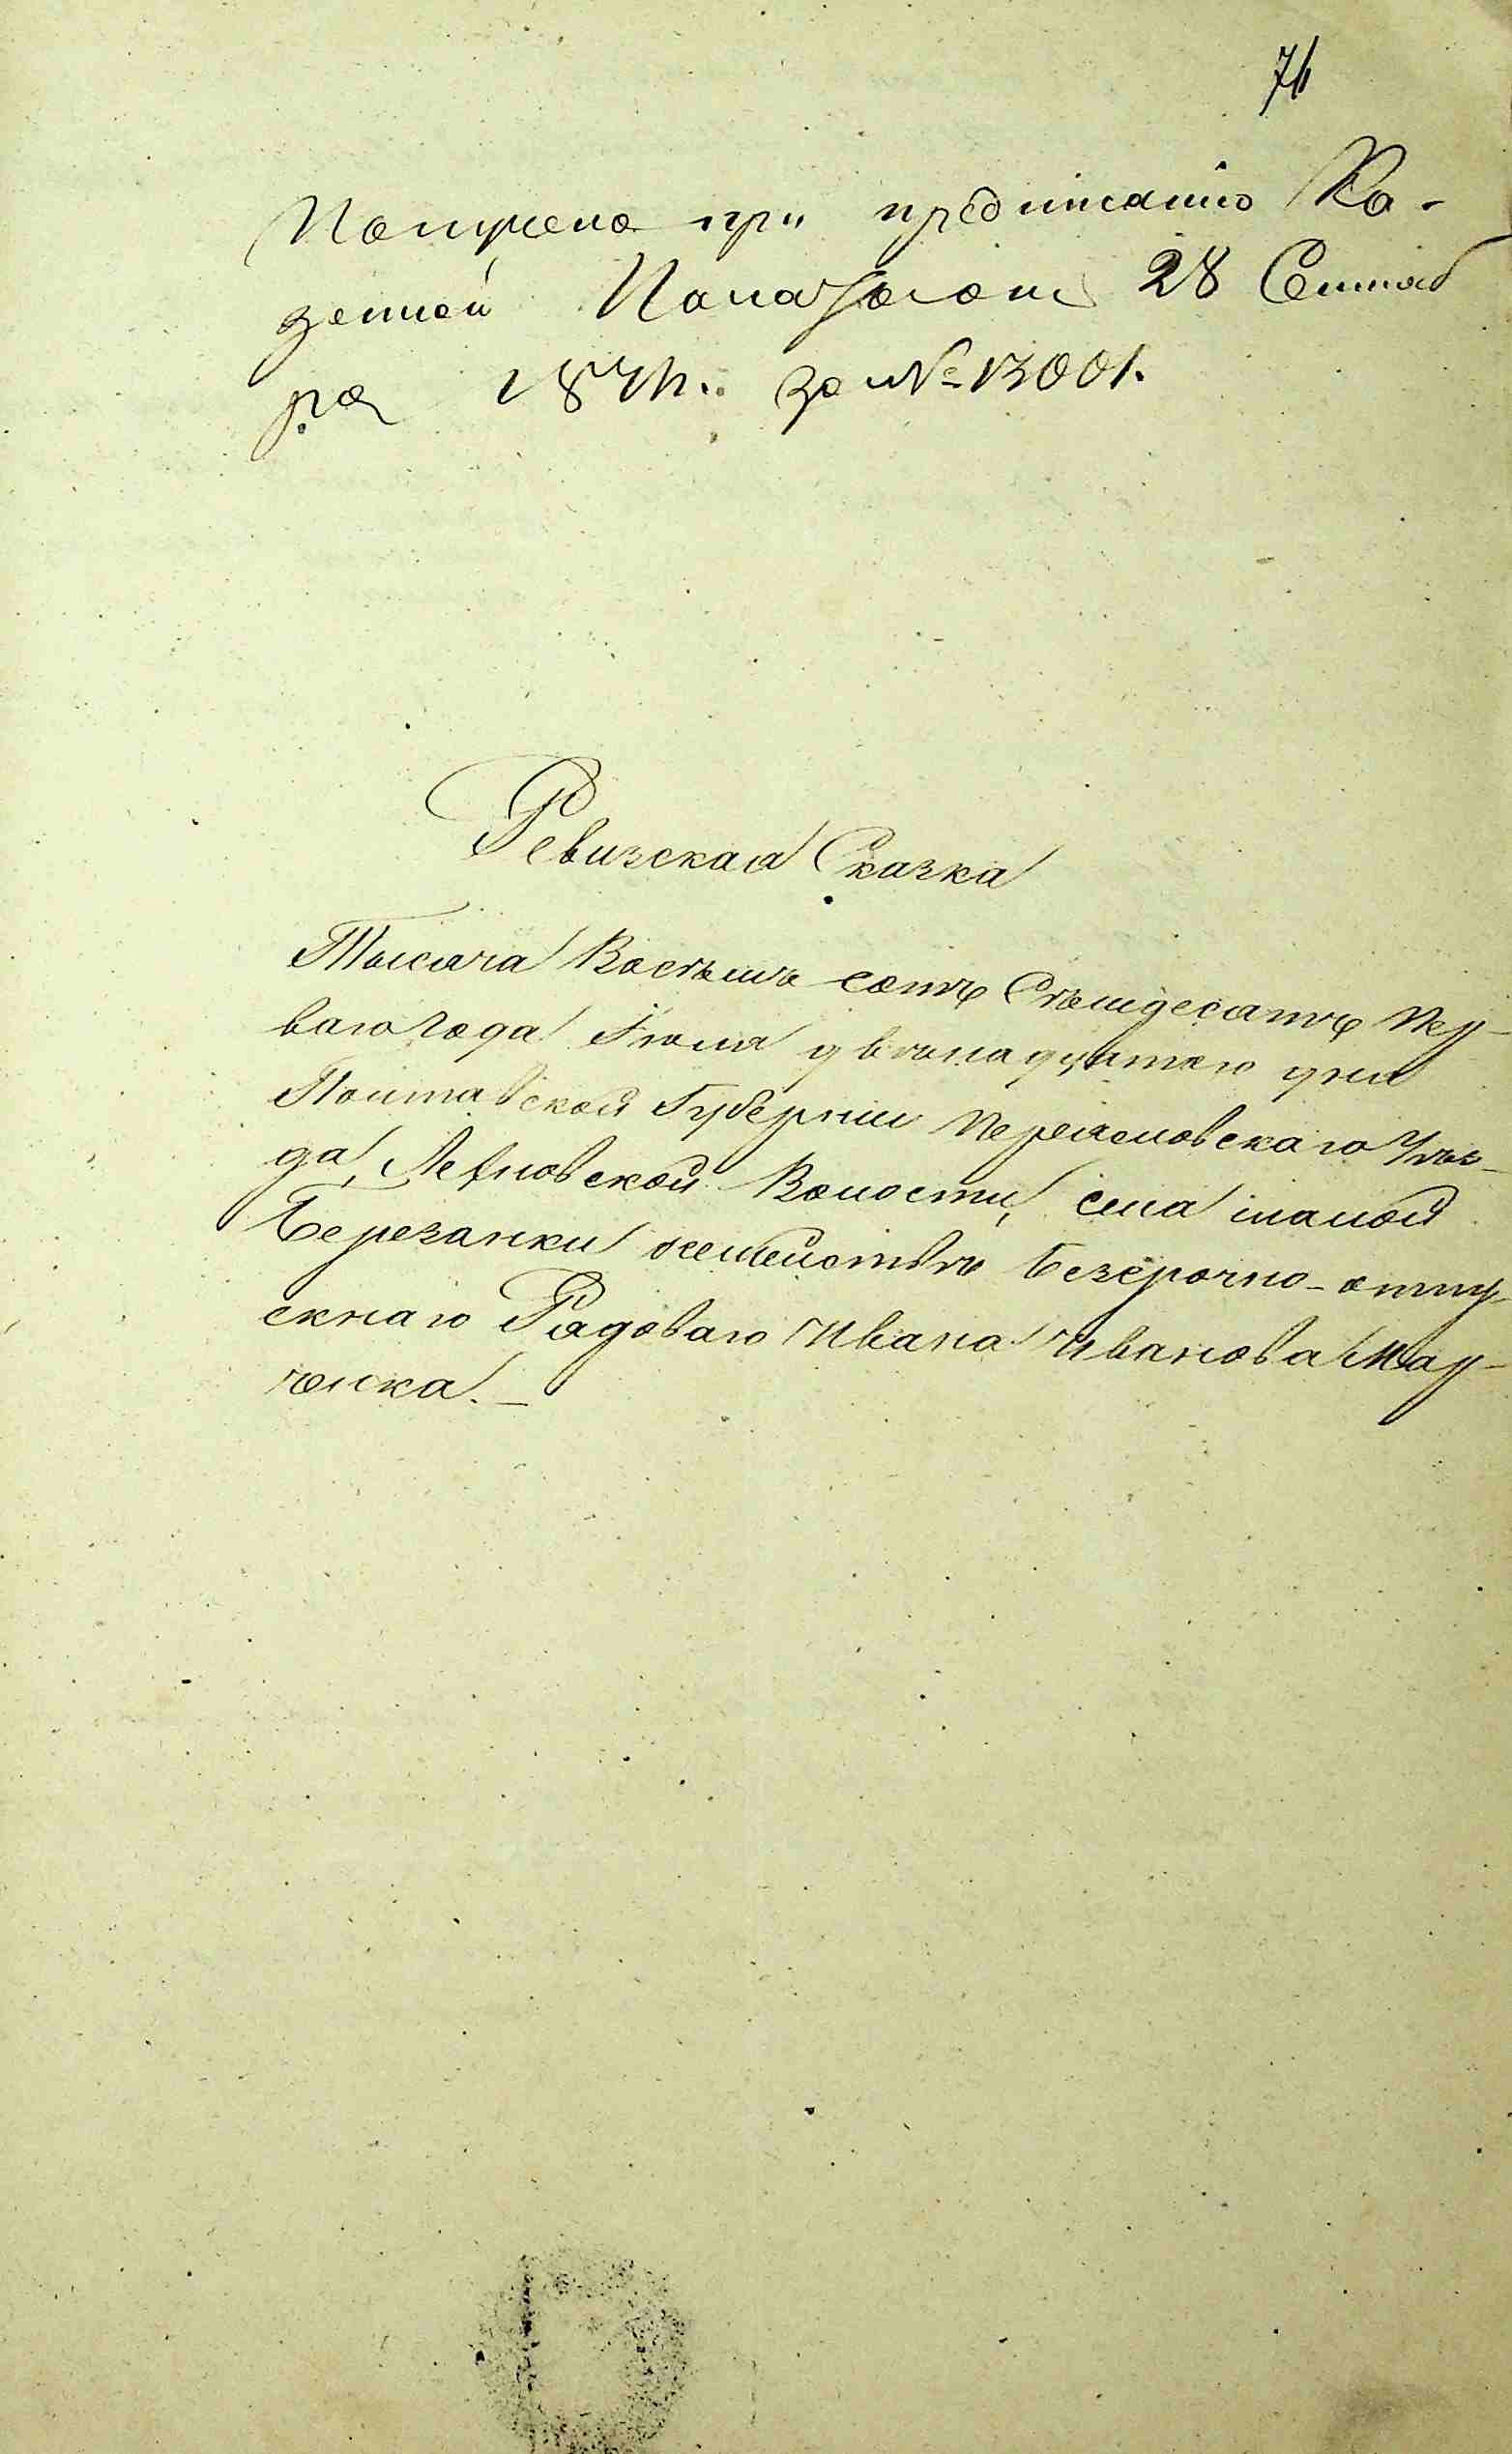 76
Получена при предписанiю Ка-
зенной Палаты отъ 28 Сентяб
ря 1871 г. за № 13001.
Ревизская Сказка
Тысяча Восѣмъ сотъ Сѣмдесятъ Пер-
ваго года Iюля двѣнадцятаго дня
Полтавской Губернiи Переяславскаго Уѣз-
да, Лехновской Волости, села малой
Березанки семействѣ безсрочно-отпу-
скнаго Рядоваго Ивана Иванова Мар-
ченка.